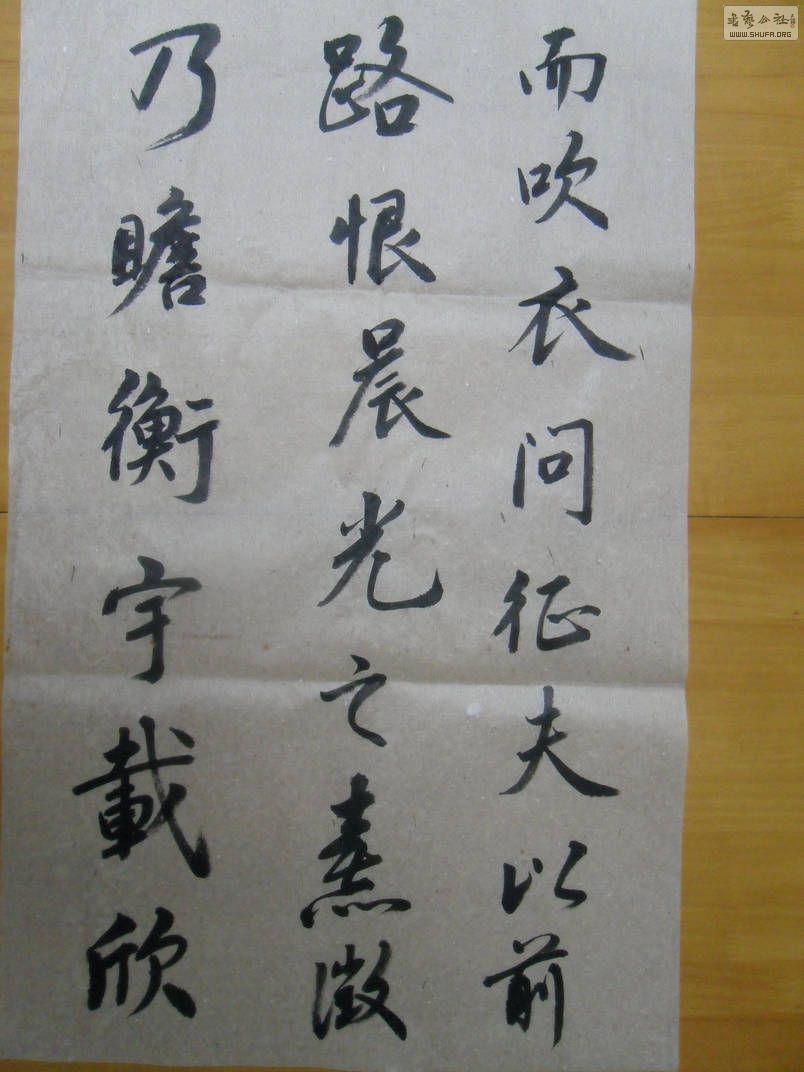 而吹衣问征夫以前
路恨晨光之熹微
乃瞻衡宇載欣
書藝公社
WWW.SHUFA.ORG